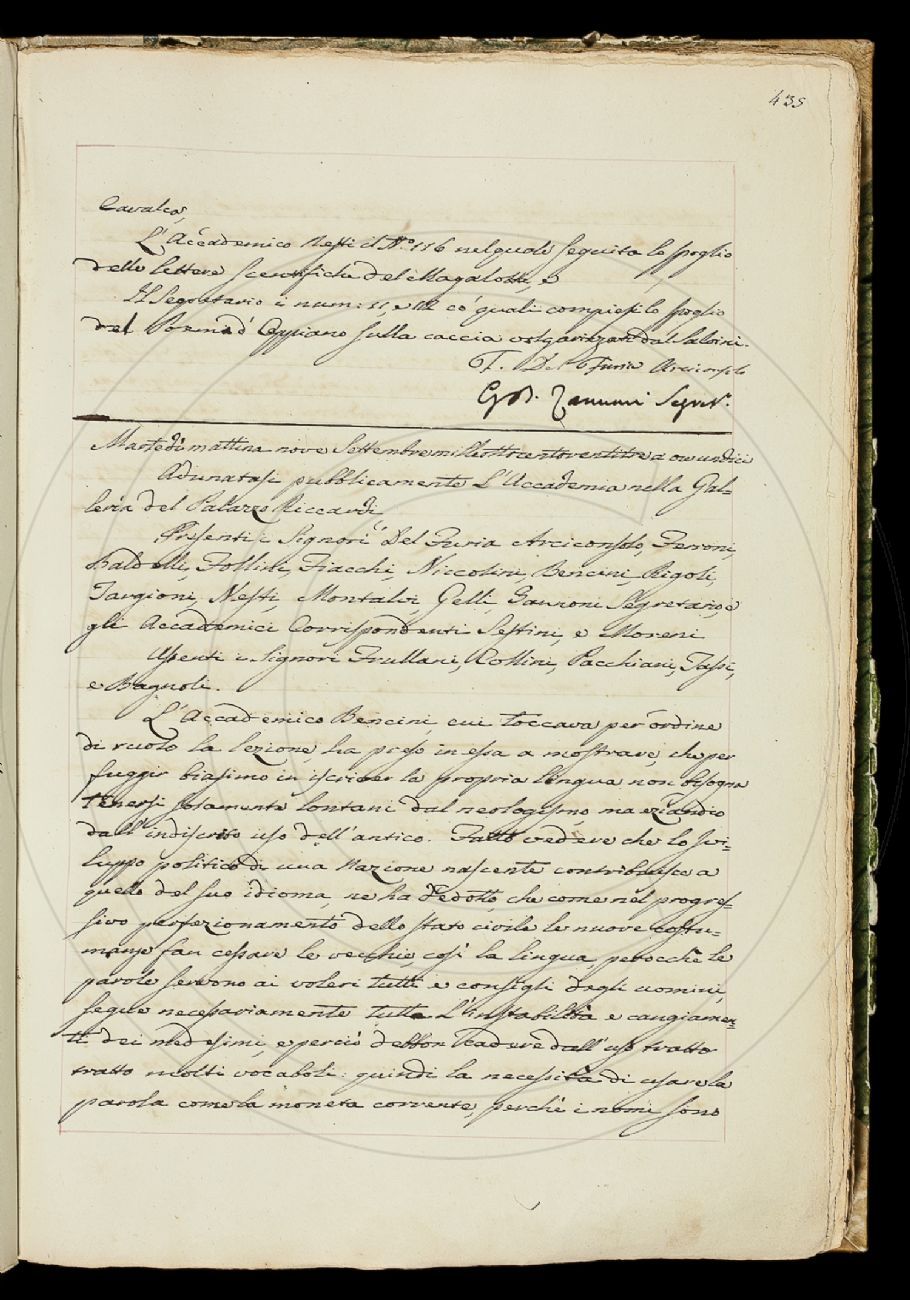 435
Cavalca,
L'Accademico Nesti il N.º 116 nel quale seguita lo spoglio
delle lettere scentifiche del Magalotti, e
Il Segretario i num: 11, e 12 co' quali compiesi lo spoglio
del Poema d'Oppiano sulla caccia volgarizzato dal Salvini.
F. Del Furia Arciconsolo
G B. Zannoni Segret.º
Martedì mattina nove Settembre mille ottocento ventitre a ore undici
Adunatasi pubblicamente L'Accademia nella Gal-
leria del Palazzo Riccardi
Presenti i Signori Del Furia Arciconsolo, Ferroni,
Baldelli, Follini, Fiacchi, Niccolini, Bencini, Rigoli,
Targioni, Nesti, Montalvi, Gelli, Zannoni Segretario, e
gli Accademici Corrispondenti Sestini, e Moreni
Assenti i Signori Frullani, Collini, Pacchiani, Tassi,
e Bagnoli.
L'Accademico Bencini, cui toccava per ordine
di ruolo la lezione, ha preso in essa a mostrare, che per
fuggir biasimo in iscriver la propria lingua non bisogna
tenersi solamente lontani dal neologismo ma eziandio
dall'indiscreto uso dell'antico. Fatto vedere che lo svi-
luppo politico di una Nazione nascente contribuisce a
quello del suo idioma, ne ha dedotto, che come nel progres-
sivo perfezionamento dello stato civile le nuove costu-
manze fan cessare le vecchie, così la lingua, perocchè le
parole servono ai voleri tutti e consigli degli uomini,
segue necessariamente tutta L'instabilità e cangiamen-
ti dei medesimi, e perciò debbon cadere dall'uso tratto
tratto molti vocaboli: quindi la necessità di usare la
parola come la moneta corrente, perchè i nomi sono